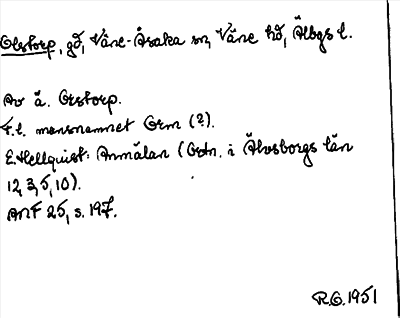 Olstorp, gd, Väne-Åsaka sn, Väne hd, Älbgs l.
Av ä. Orstorp.
F.l. mansnamnet Orm (?).
E. Hellquist: Anmälan (Ortn. i Älvsborgs län
12, 3, 5, 10).
ANF 25, s. 197.
R.O. 1951